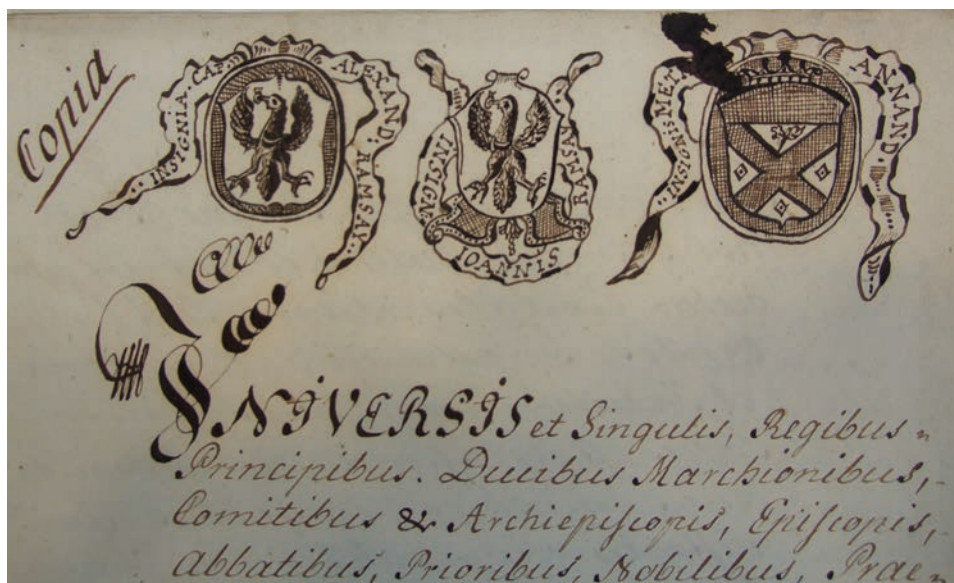 Copia
INSIGNIA. CAP. ALEXAND: RAMSAY.
INSIGN: IOANNIS RAMSAY
INSIGNIS MET ANNAND.
UNIVERSIS et Singulis, Regibus
Principibus. Ducibus Marchionibus,
Comitibus & Archiepiscopis, Episcopis,
Abbatibus, Prioribus, Nobilibus, Prae